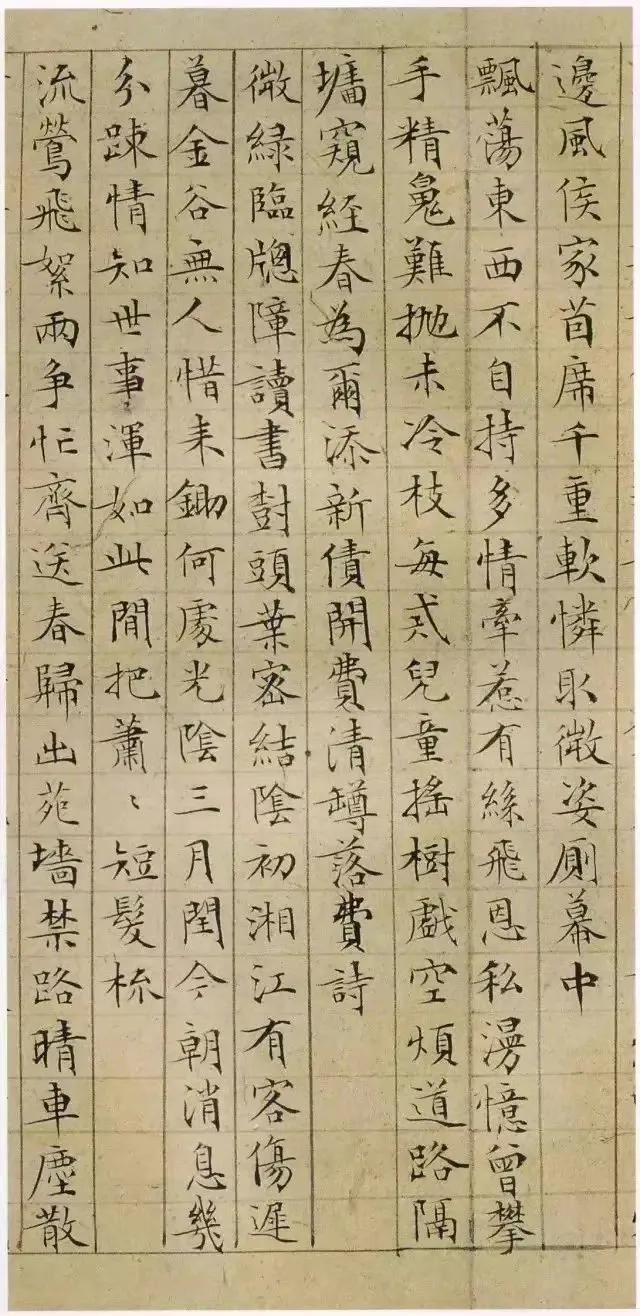 邊風侯家茵席千重軟憐取微姿厠幕中
飄蕩東西不自持多情牽惹有絲飛恩私漫憶曾攀
手精䰟難抛未冷枝每弍兒童搖樹戲空煩道路隔
墻窺経春為爾添新債開費清罇落費詩
微緑臨牕障讀書樹頭葉密結陰初湘江有客傷遲
暮金谷無人惜耒鋤何處光陰三月閏今朝消息幾
分踈情知世事渾如此閒把蕭〻短髮梳
流鶯飛絮兩争忙齊送春歸出苑墻禁路晴車塵散